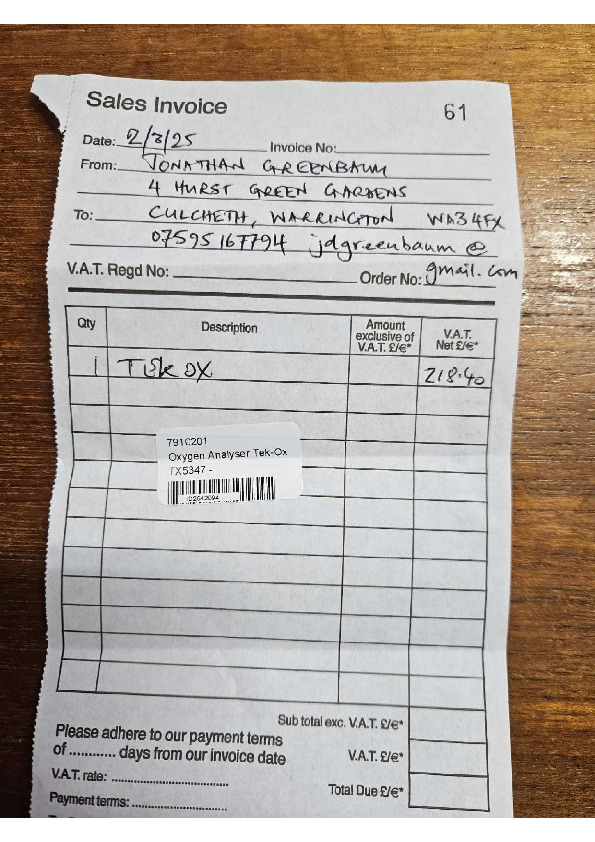 Sales Invoice 61
Date: 2/3/25 Invoice No:
From: JONATHAN GREENBAUM
4 HURST GREEN GARDENS
To: CULCHETH, WARRINGTON WA3 4FX
07595167794 jdgreenbaum@
gmail.com
V.A.T. Regd No: Order No:
Qty Description Amount exclusive of V.A.T. £/€* V.A.T. Net £/€*
1 TEK OX 218.40
7910201
Oxygen Analyser Tek-Ox
TX5347 -
Sub total exc. V.A.T. £/€*
Please adhere to our payment terms
of ............ days from our invoice date
V.A.T. £/€*
V.A.T. rate: ..............................
Total Due £/€*
Payment terms: ........................